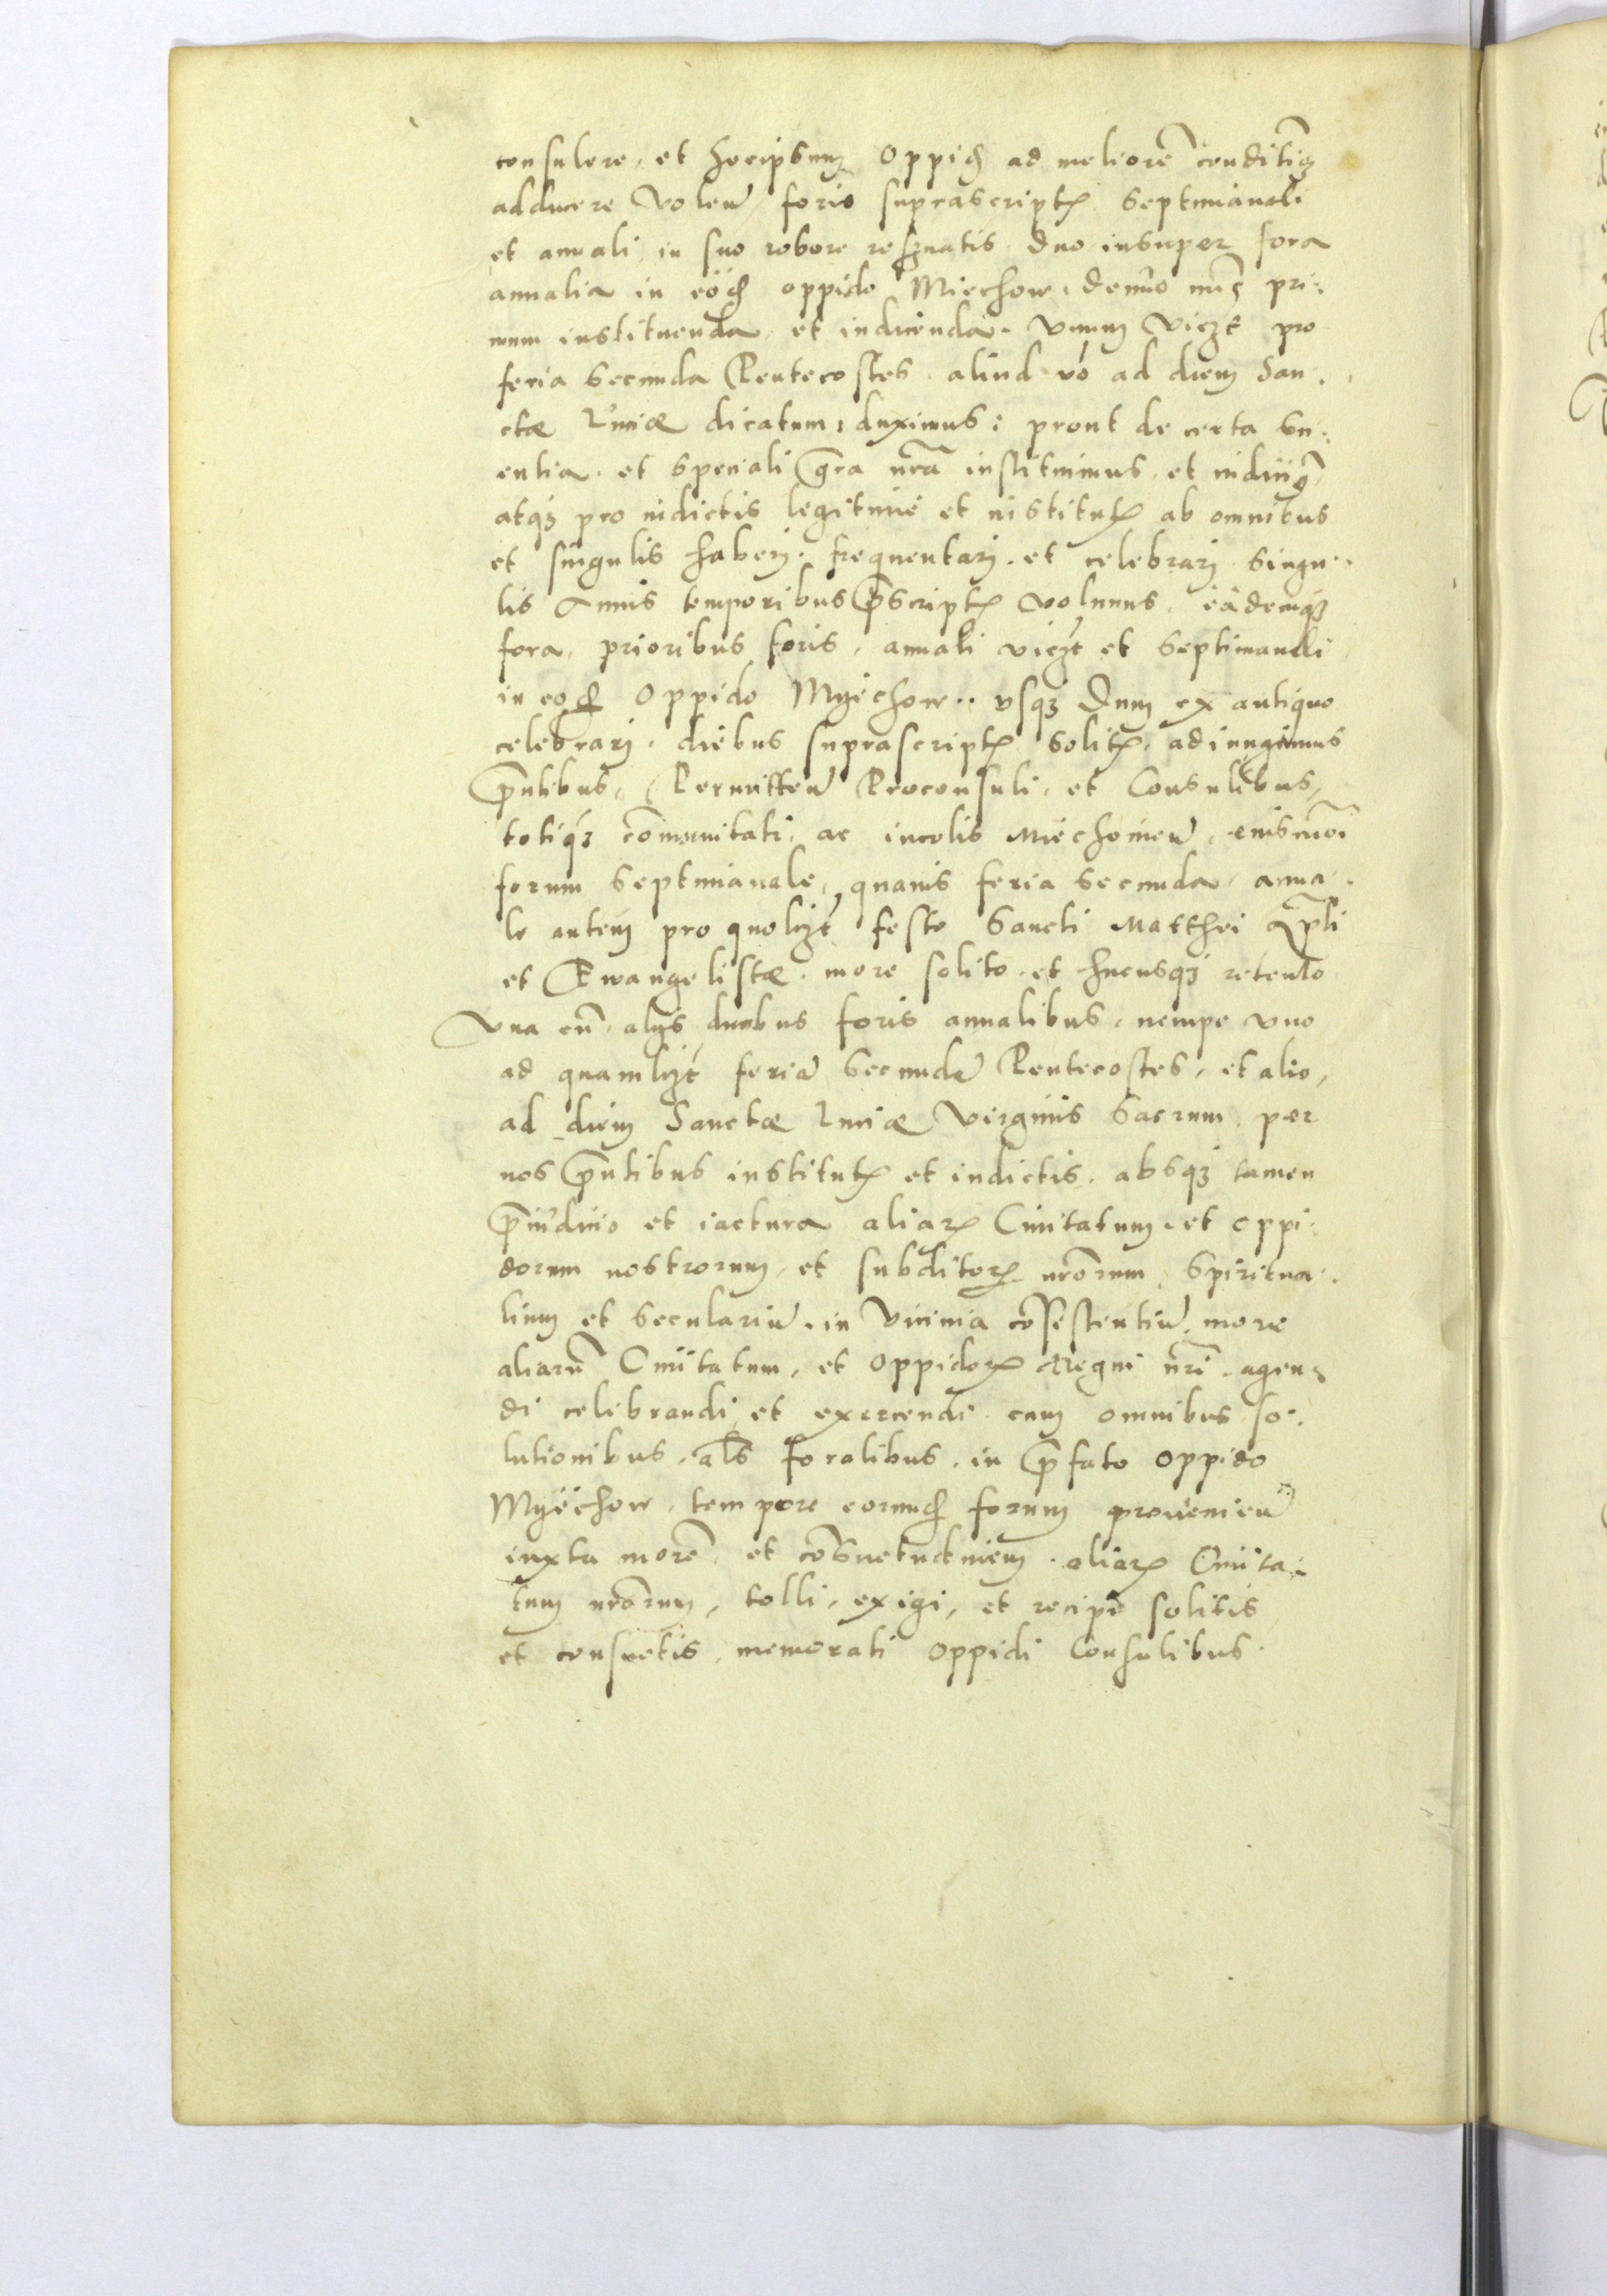 consulere, et hocipsum Oppid ad meliorē conditiōz
adducere Volen̄ foris suprascriptꝭ Septimanali
et annali in suo robore resignatis duo insuper fora
annalia in eod̄ oppido Miechow, denuo nūc pri:
mum instituenda, et indicenda. Vnum Viczt̄ pro
feria Secunda Pentecostes, aliud vō ad diem San:
ctæ Luciæ dicatum, duximus: prout de certa sci:
entia, et Speciali gr̄a nr̄a instituimus, et indicim̄
atqȝ pro indictis legitime et institutꝭ ab omnibus
et singulis haberj, frequentarj, et celebrarj Singu:
lis Annis temporibus p̄scriptꝭ Volumus, eademqȝ
fora, prioribus foris, annali viczt̄ et Septimanali
in eod̄ Oppido Myechow, vsqȝ dum ex antiquo
celebrarj, diebus suprascriptꝭ Solitꝭ, adiungimus
p̄ntibus, Permitten̄ Proconsuli, et Consulibus,
totiqȝ cōmunitati, ac incolis Miechouien̄, eiuscm̄oi
forum Septimanale, quauis feria Secunda, anna:
le autem pro quolizt̄ festo Sancti Matthei Ap̄li
et Ewangelistæ, more solito, et hucusqȝ retento
Vna cū alijs duobus foris annalibus, nempe vno
ad quamlizt̄ feriā Secundā Pentecostes, et alio,
ad diem Sanctæ Luciæ Virginis Sacrum, per
nos p̄ntibus institutꝭ et indictis, absqȝ tamen
p̄iudicio et iactura aliarꝝ Ciuitatum, et Oppi:
dorum nostrorum, et subditorꝝ nr̄orum, Spiritua:
lium et Seculariū, in Vicinia cōsistentiū, more
aliarū Ciuitatum, et Oppidorꝝ Regni nr̄i, agen:
di celebrandi et exercendi, cum omnibus so:
lutionibus, al̄s foralibus, in p̄fato Oppido
Myechow, tempore eorund̄ forum prouenien̄
iuxta morē, et cōsuetudinem, aliarꝝ Ciuita:
tum nr̄orum, tolli, exigi, et recipi solitis
et consuetis, memorati Oppidi Consulibus.